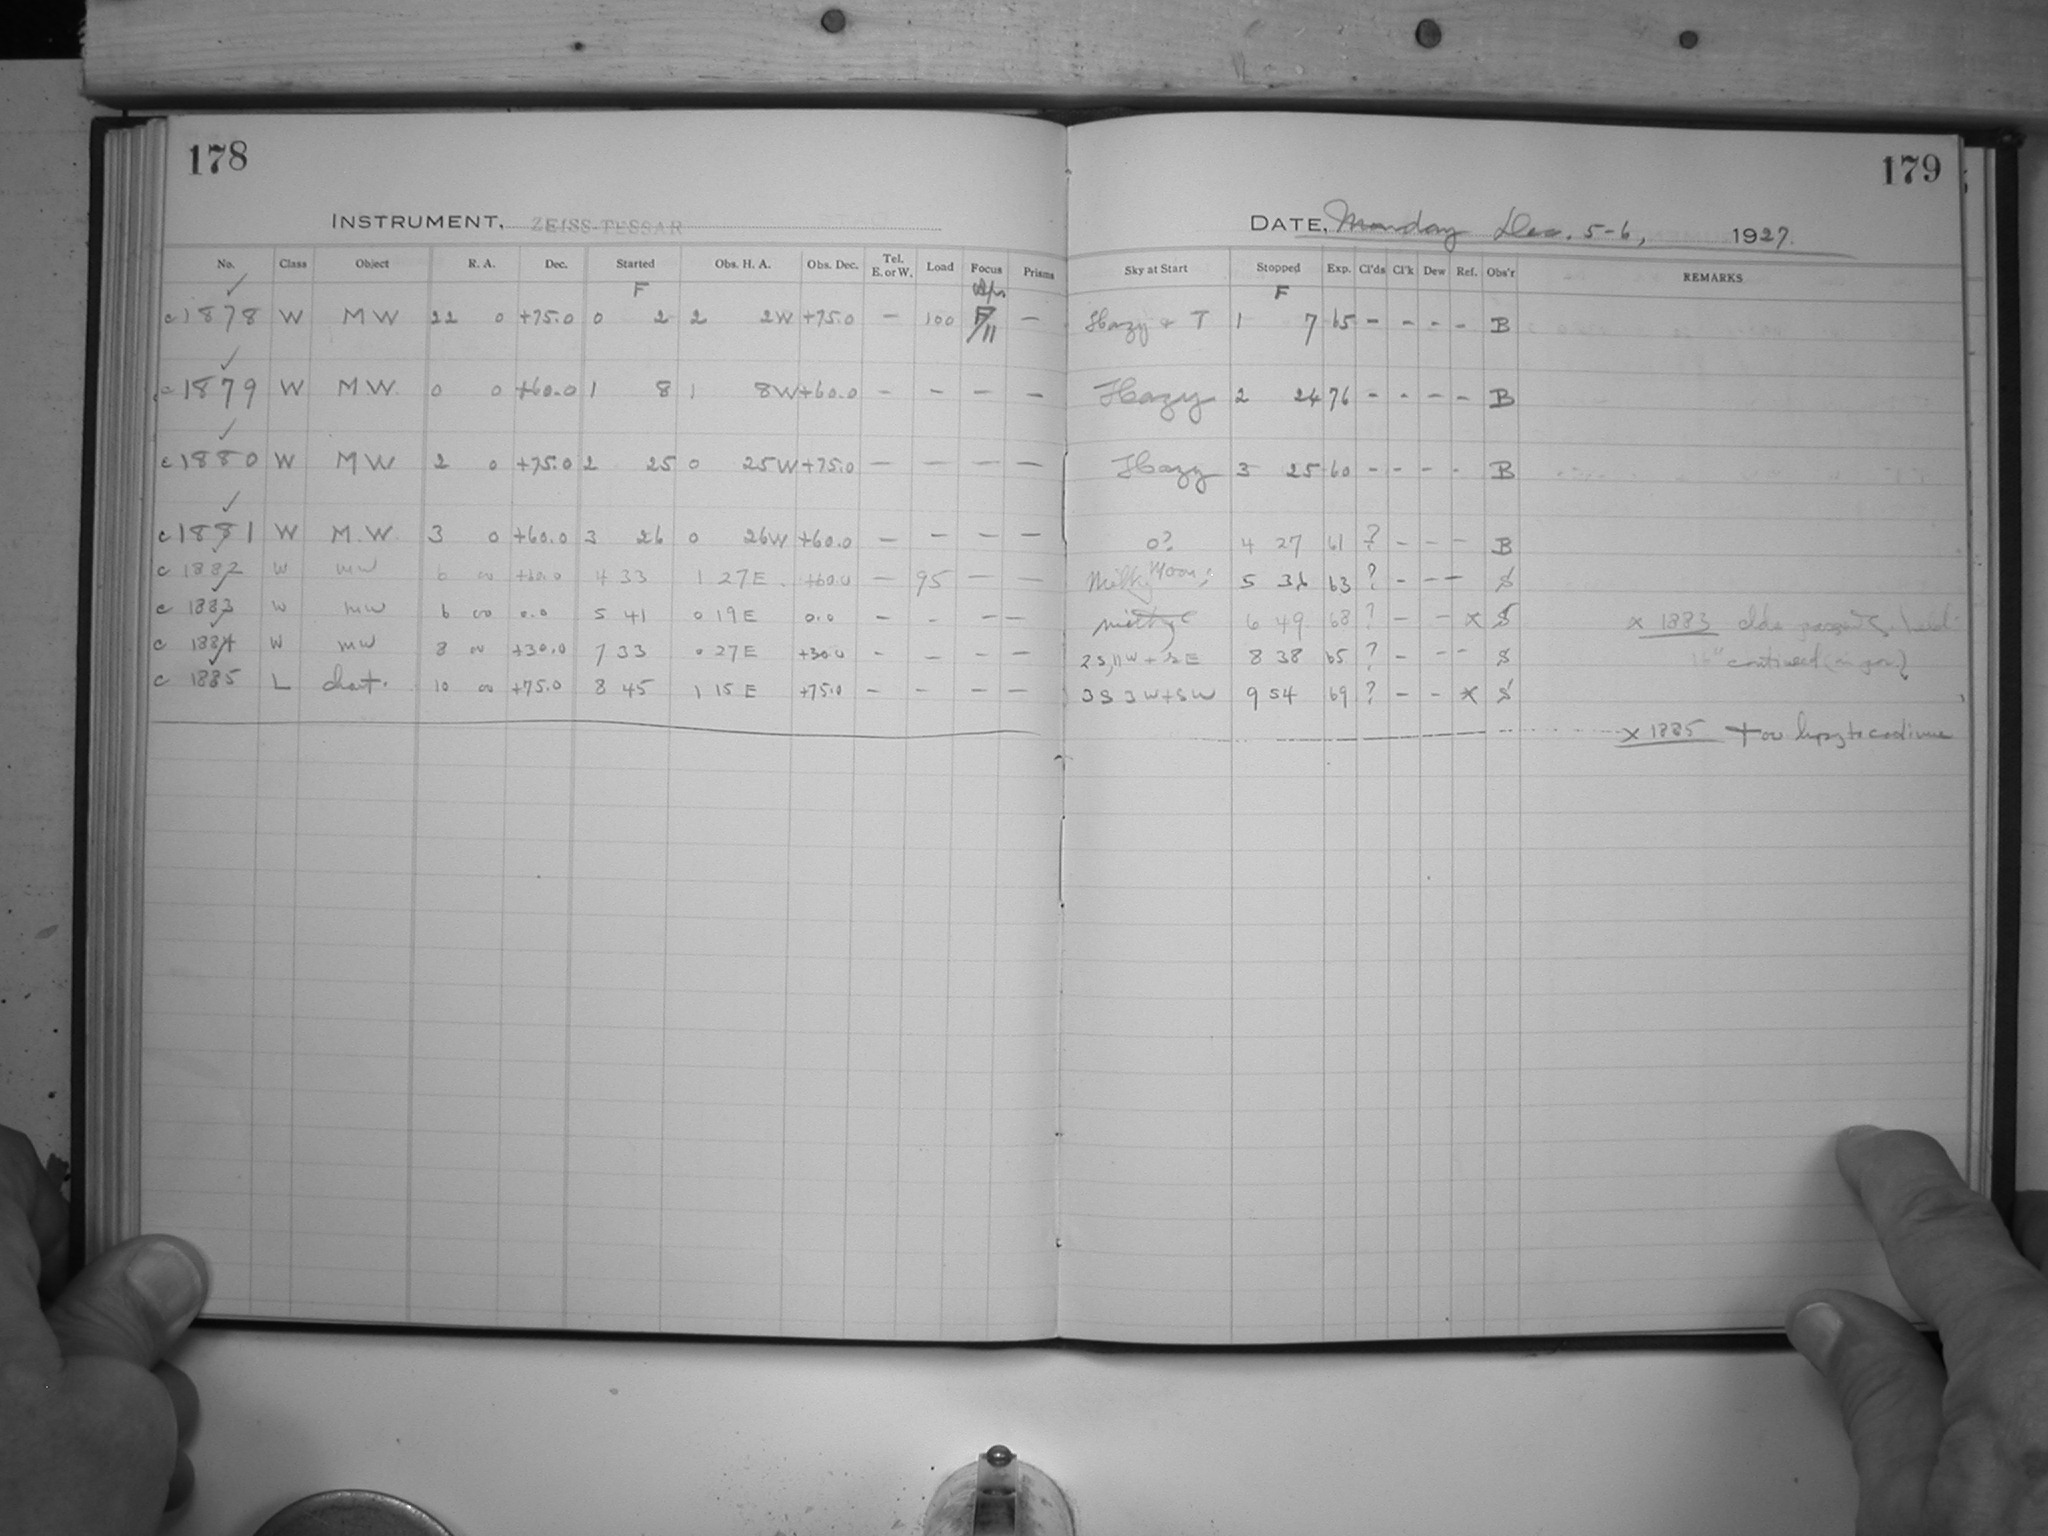 178
179
INSTRUMENT, ZEISS-TESSAR
DATE, Monday Dec. 5-6, 1927.
No. Class Object R. A. Dec. Started Obs. H. A. Obs. Dec. Tel. E. or W. Load Focus Prisms Sky at Start Stopped Exp. Cl'ds Cl'k Dew Ref. Obs'r REMARKS
F F
c 1878 W MW 22 0 +75.0 0 2 2 2W +75.0 — 100 F/11 — Hazy & T 1 7 65 - - - - B
c 1879 W MW. 0 0 +60.0 1 8 1 8W +60.0 — — — — Hazy 2 24 76 - - - - B
c 1880 W MW 2 0 +75.0 2 25 0 25W +75.0 — — — — Hazy 3 25 60 - - - - B
c 1881 W M.W. 3 0 +60.0 3 26 0 26W +60.0 — — — — 0? 4 27 61 ? - - - B
c 1882 W MW 6 00 +60.0 4 33 1 27E +60.0 — 95 — — Milky Moon 5 36 63 ? - - - S
c 1883 W MW 6 00 0.0 5 41 0 19E 0.0 - - - — 6 49 68 ? - - x S x 1883
c 1884 W MW 8 00 +30.0 7 33 0 27E +30.0 - - - — 8 38 65 ? - - - S continued
c 1885 L chart. 10 00 +75.0 8 45 1 15E +75.0 - - - — 3S 3W+SW 9 54 69 ? - - x S
x 1885 too hazy to continue